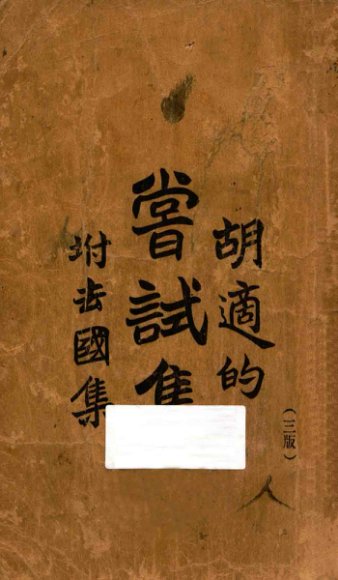 胡適的
(三版)
人
嘗試集
坿去國集